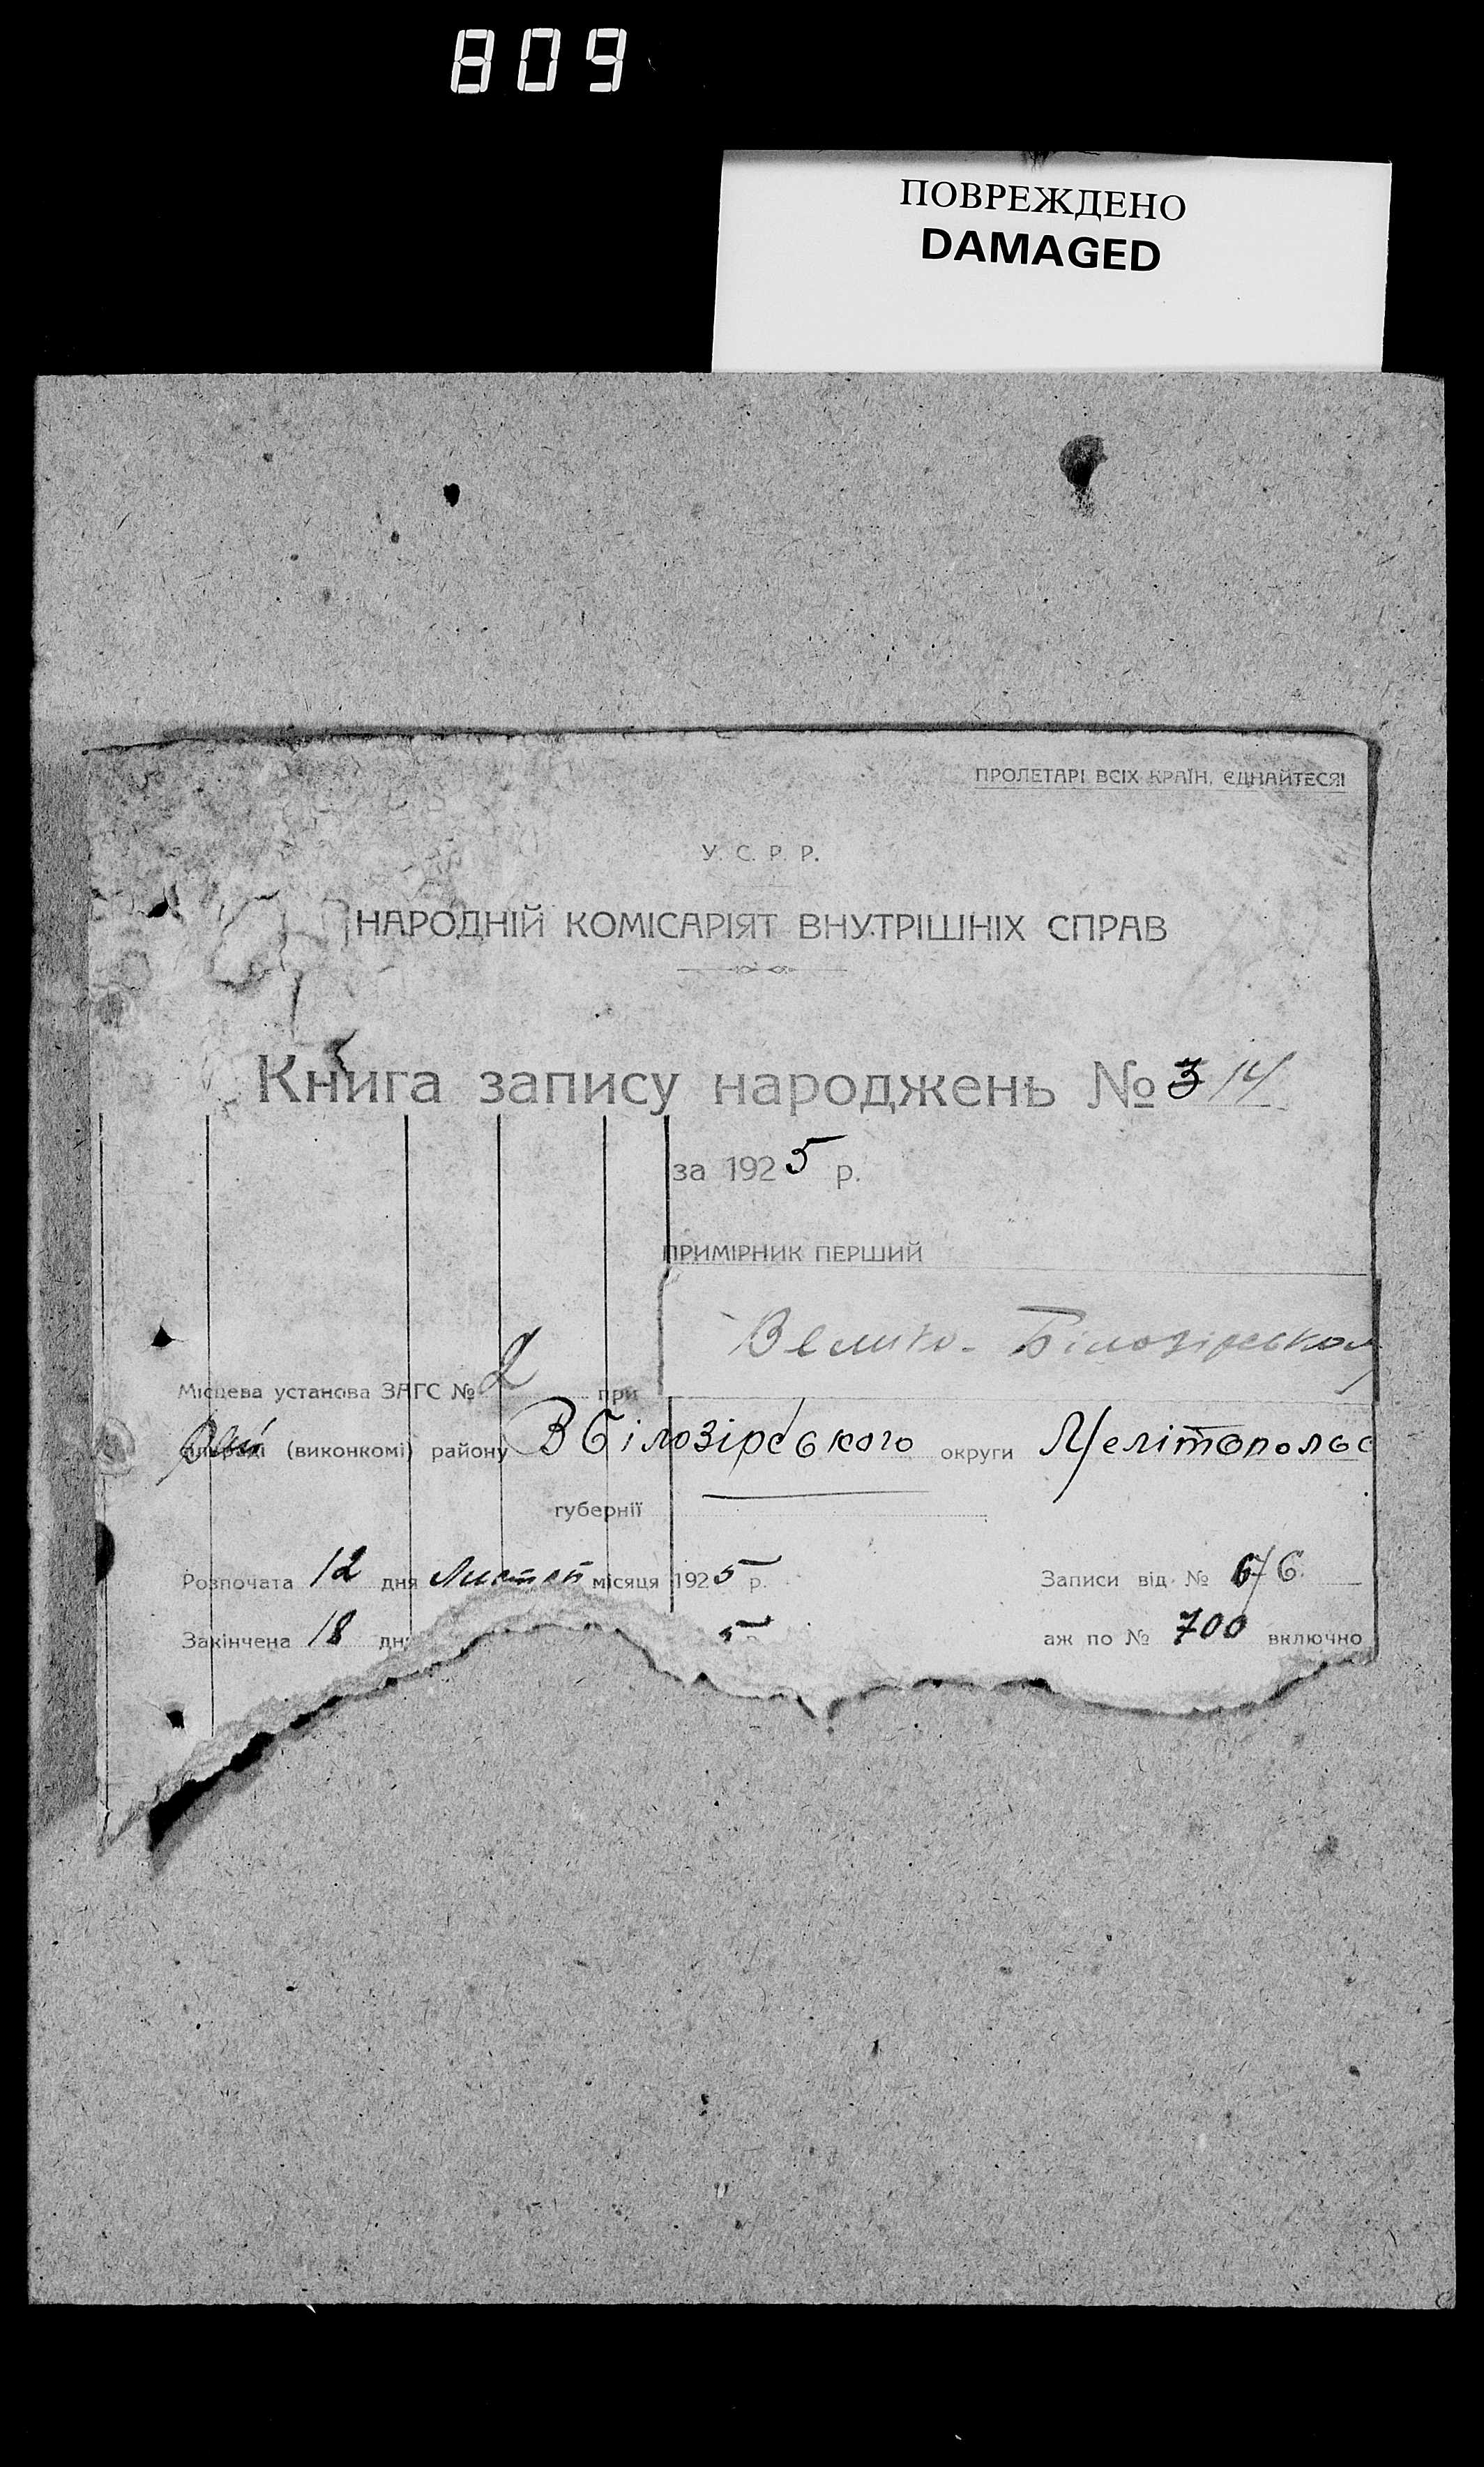 809
ПОВРЕЖДЕНО
DAMAGED
ПРОЛЕТАРІ ВСІХ КРАЇН, ЄДНАЙТЕСЯ!
У. С. Р. Р.
НАРОДНІЙ КОМІСАРІЯТ ВНУТРІШНІХ СПРАВ
Книга запису народжень № 3 14
за 1925 р.
ПРИМІРНИК ПЕРШИЙ
Велико-Білозірськом
Місцева установа ЗАГС № 2 при
(виконкомі) району ВБілозірського округи Мелітопольс
губернії
Розпочата 12 дня Листоп місяця 1925 р. Записи від №
Закінчена 18 дн 5 аж по № 700 включно